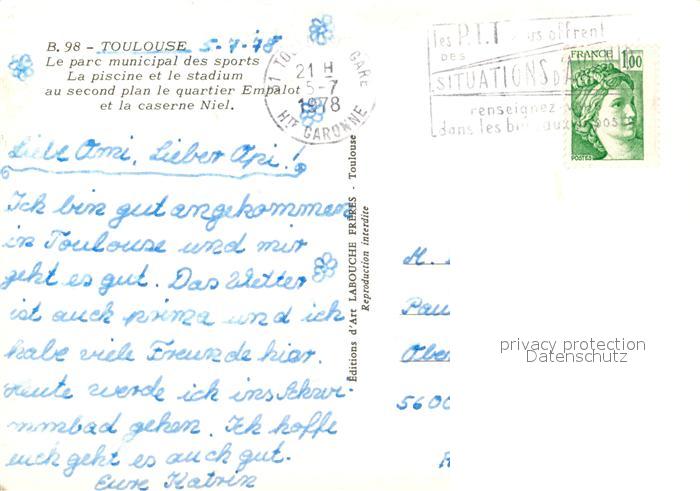 B. 98 – TOULOUSE 5-7-78
Le parc municipal des sports
La piscine et le stadium
au second plan le quartier Empalot
et la caserne Niel.
31 TOULOUSE GARE
21 H
5-7
1978
HTE GARONNE
les P.T.T vous offrent
DES
SITUATIONS
renseignez
dans les bureaux
FRANCE
1,00
POSTES
Liebe Omi, Lieber Opi!
Ich bin gut angekommen
in Toulouse und mir
geht es gut. Das Wetter
ist auch prima und ich
habe viele Freunde hier.
Heute werde ich ins Schwi-
mmbad gehen. Ich hoffe
euch geht es auch gut.
Eure Katrin
Éditions d'Art LABOUCHE FRÈRES - Toulouse
Reproduction interdite
M.
Pau
Obe
5600
privacy protection
Datenschutz